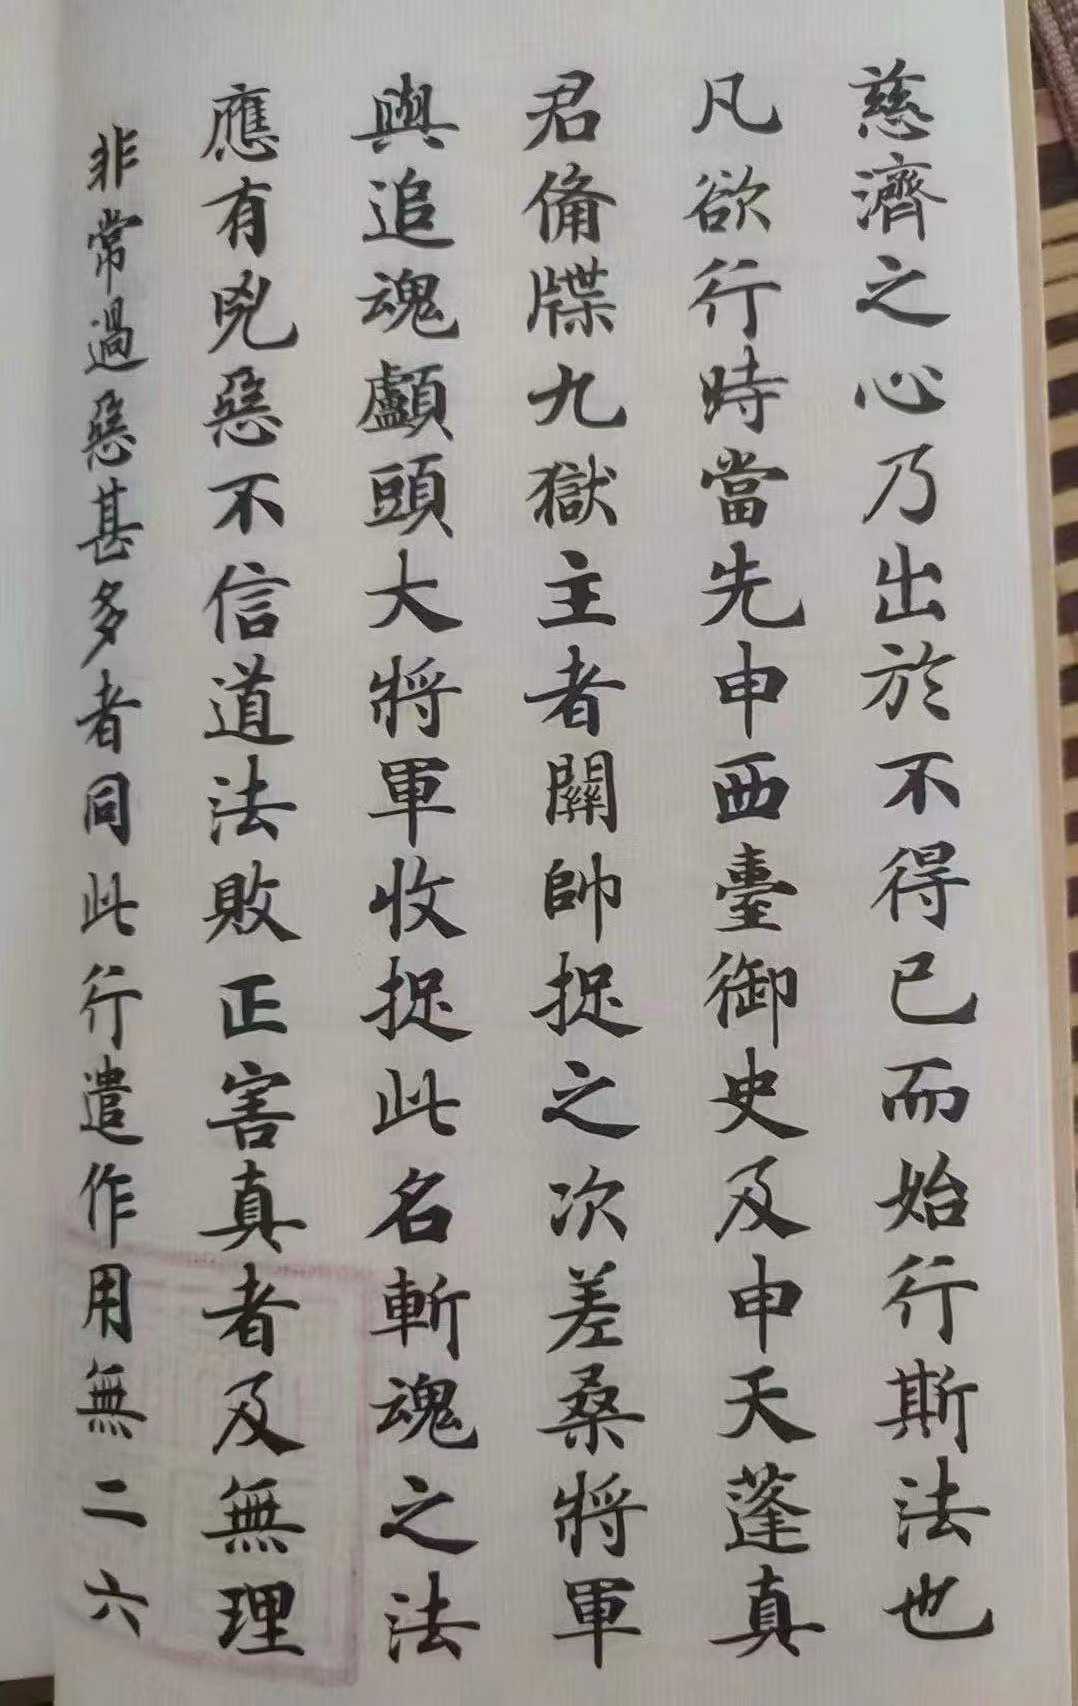 慈濟之心乃出於不得已而始行斯法也
凡欲行時當先申西臺御史及申天蓬真
君俻牒九獄主者關帥捉之次差桑將軍
與追魂顱頭大將軍收捉此名斬魂之法
應有兇惡不信道法敗正害真者及無理
非常過惡甚多者同此行遣作用無二六